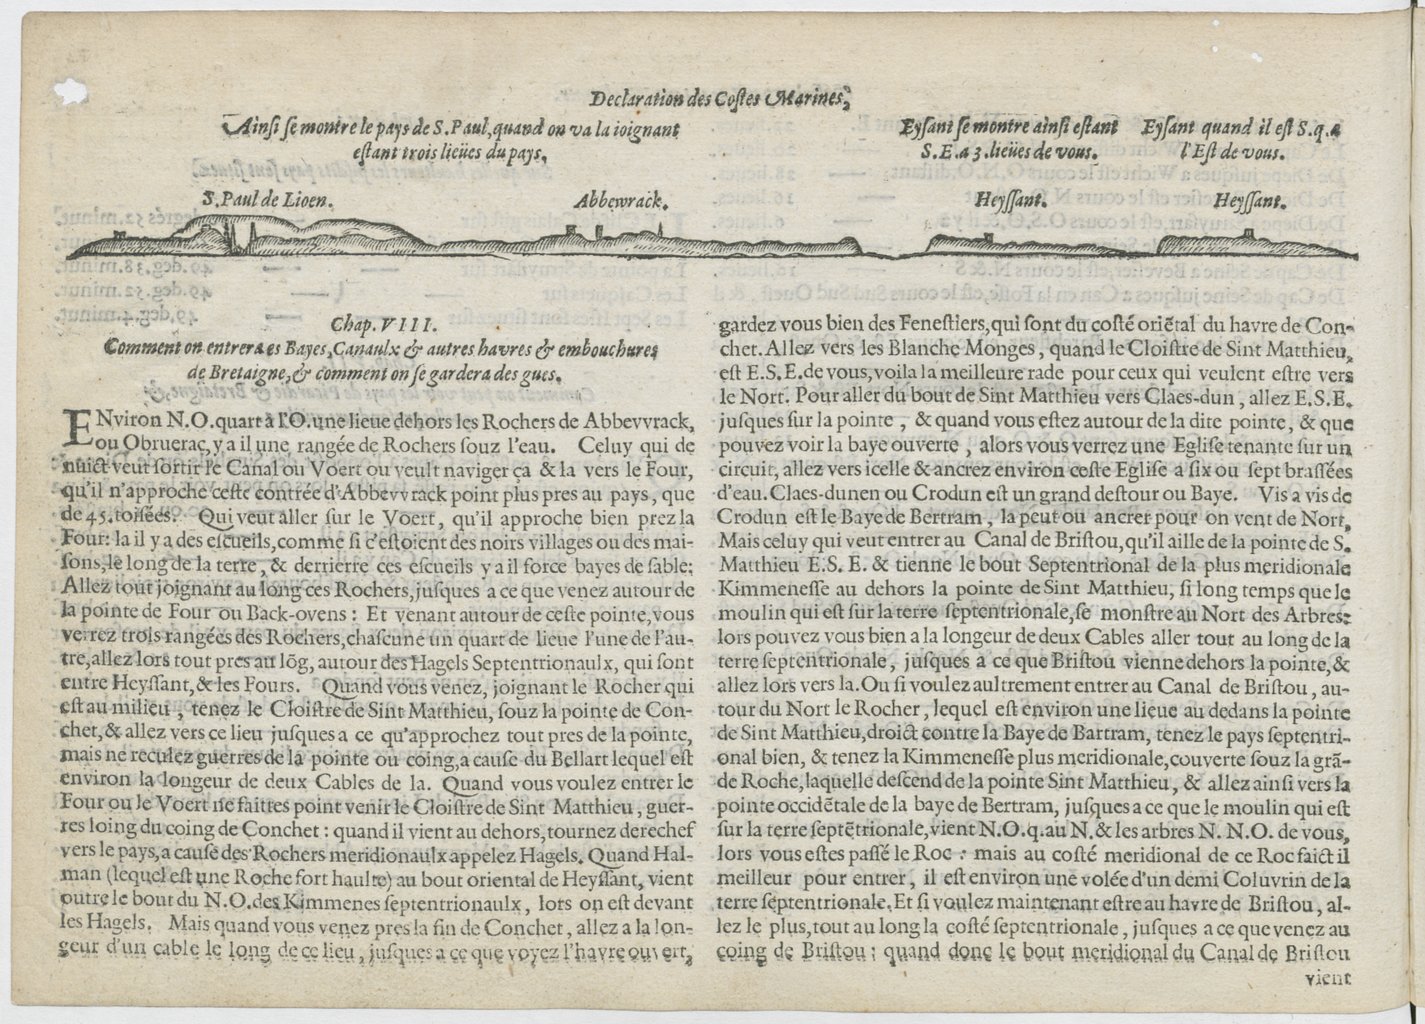 Declaration des Costes Marines,
Ainsi se montre le pays de S. Paul, quand on va la ioignant
estant trois lieües du pays.
Eysant se montre ainsi estant
S.E. a 3. lieües de vous.
Eysant quand il est S.q.a
l'Est de vous.
S. Paul de Lioen.
Abbewrack.
Heyssant.
Heyssant.
Chap. VIII.
Comment on entrera es Bayes, Canaulx & autres havres & embouchures
de Bretaigne, & comment on se gardera des gues.
ENviron N.O. quart à l'O. une lieue dehors les Rochers de Abbevvrack,
ou Obruerac, y a il une rangée de Rochers souz l'eau. Celuy qui de
nuict veut sortir le Canal ou Voert ou veult naviger ça & la vers le Four,
qu'il n'approche ceste contrée d'Abbevvrack point plus pres au pays, que
de 45. toisées. Qui veut aller sur le Voert, qu'il approche bien prez la
Four: la il y a des escueils, comme si c'estoient des noirs villages ou des mai-
sons, le long de la terre, & derrierre ces escueils y a il force bayes de sable:
Allez tout joignant au long ces Rochers, jusques a ce que venez autour de
la pointe de Four ou Back-ovens: Et venant autour de ceste pointe, vous
verrez trois rangées des Rochers, chascune un quart de lieue l'une de l'au-
tre, allez lors tout pres au lõg, autour des Hagels Septentrionaulx, qui sont
entre Heyssant, & les Fours. Quand vous venez, joignant le Rocher qui
est au milieu, tenez le Cloistre de Sint Matthieu, souz la pointe de Con-
chet, & allez vers ce lieu jusques a ce qu'approchez tout pres de la pointe,
mais ne reculez guerres de la pointe ou coing, a cause du Bellart lequel est
environ la longeur de deux Cables de la. Quand vous voulez entrer le
Four ou le Voert ne faittes point venir le Cloistre de Sint Matthieu, guer-
res loing du coing de Conchet: quand il vient au dehors, tournez derechef
vers le pays, a cause des Rochers meridionaulx appelez Hagels. Quand Hal-
man (lequel est une Roche fort haulte) au bout oriental de Heyssant, vient
outre le bout du N.O. des Kimmenes septentrionaulx, lors on est devant
les Hagels. Mais quand vous venez pres la fin de Conchet, allez a la lon-
geur d'un cable le long de ce lieu, jusques a ce que voyez l'havre ouvert,
gardez vous bien des Fenestiers, qui sont du costé oriẽtal du havre de Con-
chet. Allez vers les Blanche Monges, quand le Cloistre de Sint Matthieu,
est E.S.E. de vous, voila la meilleure rade pour ceux qui veulent estre vers
le Nort. Pour aller du bout de Sint Matthieu vers Claes-dun, allez E.S.E.
jusques sur la pointe, & quand vous estez autour de la dite pointe, & que
pouvez voir la baye ouverte, alors vous verrez une Eglise tenante sur un
circuit, allez vers icelle & ancrez environ ceste Eglise a six ou sept brassées
d'eau. Claes-dunen ou Crodun est un grand destour ou Baye. Vis a vis de
Crodun est le Baye de Bertram, la peut ou ancrer pour on vent de Nort,
Mais celuy qui veut entrer au Canal de Bristou, qu'il aille de la pointe de S.
Matthieu E.S.E. & tienne le bout Septentrional de la plus meridionale
Kimmenesse au dehors la pointe de Sint Matthieu, si long temps que le
moulin qui est sur la terre septentrionale, se monstre au Nort des Arbres:
lors pouvez vous bien a la longeur de deux Cables aller tout au long de la
terre septentrionale, jusques a ce que Bristou vienne dehors la pointe, &
allez lors vers la. Ou si voulez aultrement entrer au Canal de Bristou, au-
tour du Nort le Rocher, lequel est environ une lieue au dedans la pointe
de Sint Matthieu, droict contre la Baye de Bartram, tenez le pays septentri-
onal bien, & tenez la Kimmenesse plus meridionale, couverte souz la grã-
de Roche, laquelle descend de la pointe Sint Matthieu, & allez ainsi vers la
pointe occidẽtale de la baye de Bertram, jusques a ce que le moulin qui est
sur la terre septẽtrionale, vient N.O.q. au N. & les arbres N.N.O. de vous,
lors vous estes passé le Roc: mais au costé meridional de ce Roc faict il
meilleur pour entrer, il est environ une volée d'un demi Coluvrin de la
terre septentrionale. Et si voulez maintenant estre au havre de Bristou, al-
lez le plus, tout au long la costé septentrionale, jusques a ce que venez au
coing de Bristou: quand donc le bout meridional du Canal de Bristou
vient